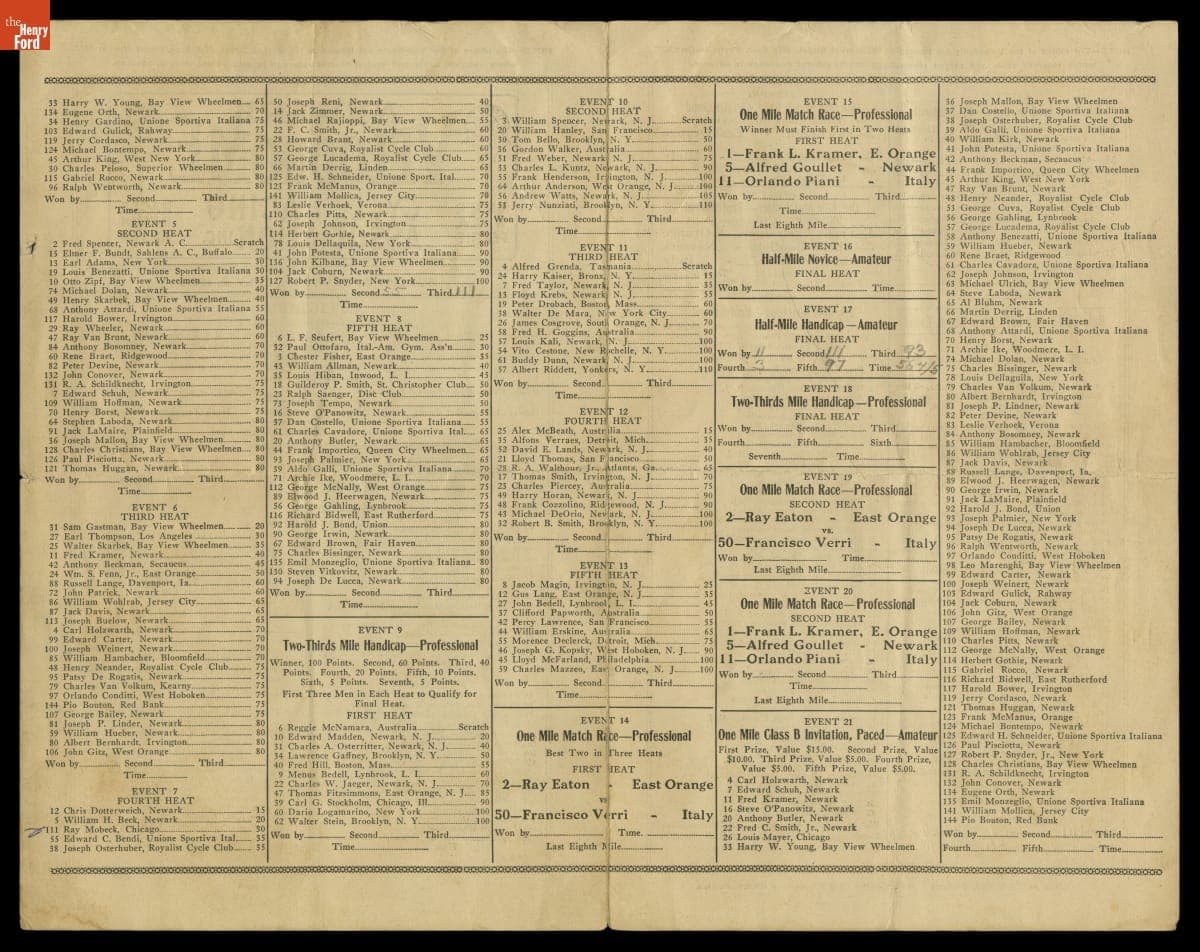 the
Henry
Ford
33 Harry W. Young, Bay View Wheelmen 65
134 Eugene Orth, Newark 70
34 Henry Gardino, Unione Sportiva Italiana 75
103 Edward Gulick, Rahway 75
119 Jerry Cordasco, Newark 75
124 Michael Bontempo, Newark 80
45 Arthur King, West New York 80
30 Charles Peloso, Superior Wheelmen 80
115 Gabriel Rocco, Newark 80
96 Ralph Wentworth, Newark 80
Won by Second Third
Time
EVENT 5
SECOND HEAT
2 Fred Spencer, Newark A. C. Scratch
15 Elmer F. Bundt, Sahlens A. C., Buffalo 20
13 Earl Adams, New York 30
19 Louis Benezatti, Unione Sportiva Italiana 30
10 Otto Zipf, Bay View Wheelmen 35
74 Michael Dolan, Newark 40
49 Henry Skarbek, Bay View Wheelmen 40
68 Anthony Attardi, Unione Sportiva Italiana 55
117 Harold Bower, Irvington 60
29 Ray Wheeler, Newark 60
47 Ray Van Brunt, Newark 60
84 Anthony Bosomney, Newark 60
60 Rene Braet, Ridgewood 70
82 Peter Devine, Newark 70
132 John Conover, Newark 70
131 R. A. Schildknecht, Irvington 75
7 Edward Schuh, Newark 75
109 William Hoffman, Newark 75
70 Henry Borst, Newark 75
64 Stephen Laboda, Newark 80
91 Jack LaMaire, Plainfield 80
36 Joseph Mallon, Bay View Wheelmen 80
128 Charles Christians, Bay View Wheelmen 80
126 Paul Pisciotta, Newark 80
121 Thomas Huggan, Newark 80
Won by Second Third
Time
EVENT 6
THIRD HEAT
31 Sam Gastman, Bay View Wheelmen 20
27 Earl Thompson, Los Angeles 30
25 Walter Skarbek, Bay View Wheelmen 35
11 Fred Kramer, Newark 40
42 Anthony Beckman, Secaucus 45
24 Wm. S. Fenn, Jr., East Orange 50
88 Russell Lange, Davenport, Ia. 60
72 John Patrick, Newark 60
86 William Wohlrab, Jersey City 65
87 Jack Davis, Newark 65
113 Joseph Buelow, Newark 65
4 Carl Holzwarth, Newark 70
99 Edward Carter, Newark 70
100 Joseph Weinert, Newark 70
85 William Hambacher, Bloomfield 70
48 Henry Neander, Royalist Cycle Club 75
95 Patsy De Rogatis, Newark 75
79 Charles Van Volkum, Kearny 75
97 Orlando Conditti, West Hoboken 75
144 Pio Bouton, Red Bank 75
107 George Bailey, Newark 75
81 Joseph P. Linder, Newark 80
59 William Hueber, Newark 80
80 Albert Bernhardt, Irvington 80
106 John Gitz, West Orange 80
Won by Second Third
Time
EVENT 7
FOURTH HEAT
12 Chris Dotterweich, Newark 15
5 William H. Beck, Newark 20
111 Ray Mobeck, Chicago 30
55 Edward C. Bendi, Unione Sportiva Ital. 35
38 Joseph Osterhuber, Royalist Cycle Club 35
50 Joseph Reni, Newark 40
14 Jack Zimmer, Newark 50
46 Michael Rajioppi, Bay View Wheelmen 55
22 F. C. Smith, Jr., Newark 60
28 Howard Brant, Newark 60
53 George Cuva, Royalist Cycle Club 60
57 George Lucadema, Royalist Cycle Club 65
66 Martin Derrig, Linden 65
125 Edw. H. Schneider, Unione Sport, Ital. 70
123 Frank McManus, Orange 70
141 William Mollica, Jersey City 70
83 Leslie Verhoek, Verona 75
110 Charles Pitts, Newark 75
62 Joseph Johnson, Irvington 75
114 Herbert Gothie, Newark 80
78 Louis Dellaquila, New York 80
41 John Potesta, Unione Sportiva Italiana 90
136 John Kilbane, Bay View Wheelmen 90
104 Jack Coburn, Newark 90
127 Robert P. Snyder, New York 100
Won by Second 55 Third 111
Time
EVENT 8
FIFTH HEAT
6 L. F. Seufert, Bay View Wheelmen 25
32 Paul Ottofaro, Ital.-Am. Gym. Ass'n 30
3 Chester Fisher, East Orange 35
43 William Allman, Newark 40
35 Louis Hiban, Inwood, L. I. 45
18 Guilderoy P. Smith, St. Christopher Club 50
23 Ralph Saenger, Disc Club 50
73 Joseph Tempo, Newark 50
16 Steve O'Panowitz, Newark 55
37 Dan Costello, Unione Sportiva Italiana 55
61 Charles Cavadore, Unione Sportiva Ital. 65
20 Anthony Butler, Newark 65
44 Frank Importico, Queen City Wheelmen 65
93 Joseph Palmier, New York 65
39 Aldo Galli, Unione Sportiva Italiana 70
71 Archie Ike, Woodmere, L. I. 70
112 George McNally, West Orange 70
89 Elwood J. Heerwagen, Newark 75
56 George Gahling, Lynbrook 75
116 Richard Bidwell, East Rutherford 75
92 Harold J. Bond, Union 80
90 George Irwin, Newark 80
67 Edward Brown, Fair Haven 80
75 Charles Bissinger, Newark 80
135 Emil Monzeglio, Unione Sportiva Italiana 80
130 Steven Vitkovitz, Newark 80
94 Joseph De Lucca, Newark 80
Won by Second Third
Time
EVENT 9
Two-Thirds Mile Handicap—Professional
Winner, 100 Points. Second, 60 Points. Third, 40
Points. Fourth, 20 Points. Fifth, 10 Points.
Sixth, 5 Points. Seventh, 5 Points.
First Three Men in Each Heat to Qualify for
Final Heat.
FIRST HEAT
6 Reggie McNamara, Australia Scratch
10 Edward Madden, Newark, N. J. 20
31 Charles A. Osterritter, Newark, N. J. 40
34 Lawrence Gaffney, Brooklyn, N. Y. 50
40 Fred Hill, Boston, Mass. 55
9 Menus Bedell, Lynbrook, L. I. 60
22 Charles W. Jaeger, Newark, N. J. 70
47 Thomas Fitzsimmons, East Orange, N. J. 85
39 Carl G. Stockholm, Chicago, Ill. 90
60 Dario Logamarino, New York 100
62 Walter Stein, Brooklyn, N. Y. 100
Won by Second Third
Time
EVENT 10
SECOND HEAT
3 William Spencer, Newark, N. J. Scratch
20 William Hanley, San Francisco 15
30 Tom Bello, Brooklyn, N. Y. 50
36 Gordon Walker, Australia 60
51 Fred Weber, Newark, N. J. 75
33 Charles L. Kuntz, Newark, N. J. 90
55 Frank Henderson, Irvington, N. J. 100
64 Arthur Anderson, West Orange, N. J. 100
56 Andrew Watts, Newark, N. J. 105
53 Jerry Nunziati, Brooklyn, N. Y. 110
Won by Second Third
Time
EVENT 11
THIRD HEAT
4 Alfred Grenda, Tasmania Scratch
24 Harry Kaiser, Bronx, N. Y. 15
7 Fred Taylor, Newark, N. J. 35
13 Floyd Krebs, Newark, N. J. 55
19 Peter Drobach, Boston, Mass. 60
18 Walter De Mara, New York City 60
26 James Cosgrove, South Orange, N. J. 70
38 Fred H. Goggins, Australia 90
57 Louis Kali, Newark, N. J. 90
54 Vito Cestone, New Rochelle, N. Y. 100
61 Buddy Dunn, Newark, N. J. 100
57 Albert Riddett, Yonkers, N. Y. 110
Won by Second Third
Time
EVENT 12
FOURTH HEAT
25 Alec McBeath, Australia 15
35 Alfons Verraes, Detroit, Mich. 35
52 David E. Lands, Newark, N. J. 40
21 Lloyd Thomas, San Francisco 50
28 R. A. Walthour, Jr., Atlanta, Ga. 65
17 Thomas Smith, Irvington, N. J. 70
23 Charles Piercey, Australia 75
49 Harry Horan, Newark, N. J. 90
48 Frank Cozzolino, Ridgewood, N. J. 90
43 Michael DeOrio, Newark, N. J. 100
32 Robert B. Smith, Brooklyn, N. Y. 100
Won by Second Third
Time
EVENT 13
FIFTH HEAT
8 Jacob Magin, Irvington, N. J. 25
12 Gus Lang, East Orange, N. J. 35
27 John Bedell, Lynbrook, L. I. 45
37 Clifford Papworth, Australia 50
42 Percy Lawrence, San Francisco 55
44 William Erskine, Australia 65
55 Morence Declerck, Detroit, Mich. 75
46 Joseph G. Kopsky, West Hoboken, N. J. 90
45 Lloyd McFarland, Philadelphia 100
59 Charles Mazzeo, East Orange, N. J. 100
Won by Second Third
Time
EVENT 14
One Mile Match Race—Professional
Best Two in Three Heats
FIRST HEAT
2—Ray Eaton - East Orange
vs
50—Francisco Verri - Italy
Won by Time.
Last Eighth Mile
EVENT 15
One Mile Match Race—Professional
Winner Must Finish First in Two Heats
FIRST HEAT
1—Frank L. Kramer, E. Orange
5—Alfred Goullet - Newark
11—Orlando Piani - Italy
Won by Second Third
Time
Last Eighth Mile
EVENT 16
Half-Mile Novice—Amateur
FINAL HEAT
Won by Second Third
EVENT 17
Half-Mile Handicap—Amateur
FINAL HEAT
Won by 11 Second 111 Third 93
Fourth 3 Fifth 97 Time 55 4/5
EVENT 18
Two-Thirds Mile Handicap—Professional
FINAL HEAT
Won by Second Third
Fourth Fifth Sixth
Seventh Time
EVENT 19
One Mile Match Race—Professional
SECOND HEAT
2—Ray Eaton - East Orange
vs.
50—Francisco Verri - Italy
Won by Time
Last Eighth Mile
EVENT 20
One Mile Match Race—Professional
SECOND HEAT
1—Frank L. Kramer, E. Orange
5—Alfred Goullet - Newark
11—Orlando Piani - Italy
Won by Second Third
Time
Last Eighth Mile
EVENT 21
One Mile Class B Invitation, Paced—Amateur
First Prize, Value $15.00. Second Prize, Value
$10.00. Third Prize, Value $5.00. Fourth Prize,
Value $5.00. Fifth Prize, Value $5.00.
4 Carl Holzwarth, Newark
7 Edward Schuh, Newark
11 Fred Kramer, Newark
16 Steve O'Panowitz, Newark
20 Anthony Butler, Newark
22 Fred C. Smith, Jr., Newark
26 Louis Mayer, Chicago
33 Harry W. Young, Bay View Wheelmen
36 Joseph Mallon, Bay View Wheelmen
37 Dan Costello, Unione Sportiva Italiana
38 Joseph Osterhuber, Royalist Cycle Club
39 Aldo Galli, Unione Sportiva Italiana
40 William Kirk, Newark
41 John Potesta, Unione Sportiva Italiana
42 Anthony Beckman, Secaucus
44 Frank Importico, Queen City Wheelmen
45 Arthur King, West New York
47 Ray Van Brunt, Newark
48 Henry Neander, Royalist Cycle Club
53 George Cuva, Royalist Cycle Club
56 George Gahling, Lynbrook
57 George Lucadema, Royalist Cycle Club
58 Anthony Benezatti, Unione Sportiva Italiana
59 William Hueber, Newark
60 Rene Braet, Ridgewood
61 Charles Cavadore, Unione Sportiva Italiana
62 Joseph Johnson, Irvington
63 Michael Ulrich, Bay View Wheelmen
64 Steve Laboda, Newark
65 Al Bluhm, Newark
66 Martin Derrig, Linden
67 Edward Brown, Fair Haven
68 Anthony Attardi, Unione Sportiva Italiana
70 Henry Borst, Newark
71 Archie Ike, Woodmere, L. I.
74 Michael Dolan, Newark
75 Charles Bissinger, Newark
78 Louis Dellaguila, New York
79 Charles Van Volkum, Newark
80 Albert Bernhardt, Irvington
81 Joseph P. Lindner, Newark
82 Peter Devine, Newark
83 Leslie Verhoek, Verona
84 Anthony Bosomney, Newark
85 William Hambacher, Bloomfield
86 William Wohlrab, Jersey City
87 Jack Davis, Newark
88 Russell Lange, Davenport, Ia.
89 Elwood J. Heerwagen, Newark
90 George Irwin, Newark
91 Jack LaMarie, Plainfield
92 Harold J. Bond, Union
93 Joseph Palmier, New York
94 Joseph De Lucca, Newark
95 Patsy De Rogatis, Newark
96 Ralph Wentworth, Newark
97 Orlando Conditti, West Hoboken
98 Leo Marenghi, Bay View Wheelmen
99 Edward Carter, Newark
100 Joseph Weinert, Newark
103 Edward Gulick, Rahway
104 Jack Coburn, Newark
106 John Gitz, West Orange
107 George Bailey, Newark
109 William Hoffman, Newark
110 Charles Pitts, Newark
112 George McNally, West Orange
114 Herbert Gothie, Newark
115 Gabriel Rocco, Newark
116 Richard Bidwell, East Rutherford
117 Harold Bower, Irvington
119 Jerry Cordasco, Newark
121 Thomas Huggan, Newark
123 Frank McManus, Orange
124 Michael Bontempo, Newark
125 Edward H. Schneider, Unione Sportiva Italiana
126 Paul Pisciotta, Newark
127 Robert P. Snyder, Jr., New York
128 Charles Christians, Bay View Wheelmen
131 R. A. Schildknecht, Irvington
132 John Conover, Newark
134 Eugene Orth, Newark
135 Emil Monzeglio, Unione Sportiva Italiana
141 William Mollica, Jersey City
144 Pio Bouton, Red Bank
Won by Second Third
Fourth Fifth Time